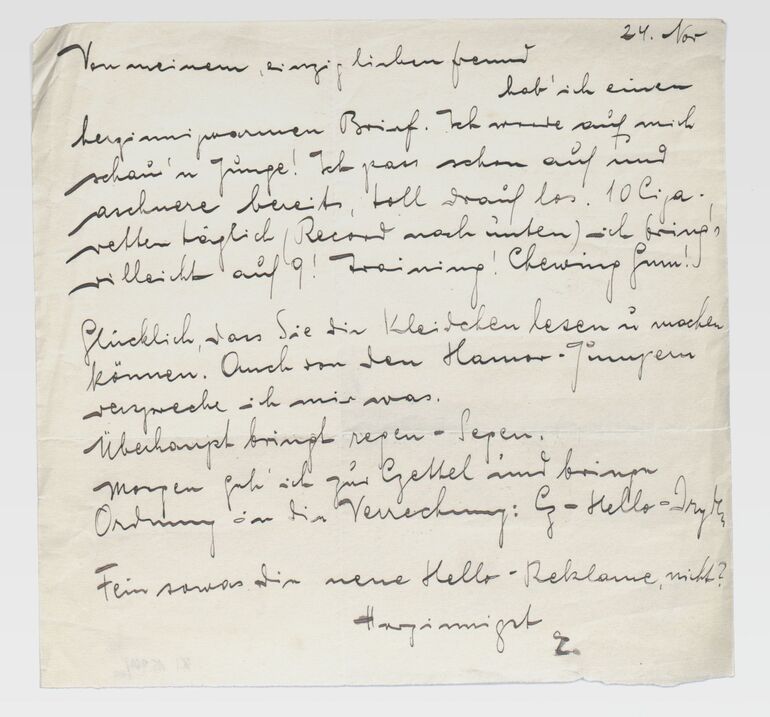 24. Nov
Von meinem, einzig lieben freund
hab' ich einen
herzinnigwarmen Brief. Ich werde auf mich
schau'n Junge! Ich pass schon auf und
bereits, toll drauf los. 10 Ciga-
retten täglich (Record nach unten) ich bring's
villeicht auf 9! Training! Chewing Gum!
Glücklich, dass Sie die Kleidchen lesen u machen
können. Auch von den Humor-Jumpern
verspreche ich mir was.
Überhaupt bringt regen - Segen.
Morgen geh' ich zur Czettel und bringe
Ordnung in die Verrechnung: Cz - Hello -
Fein sowas die neue Hello-Reklame, nicht?
Herzinnigst
Z.